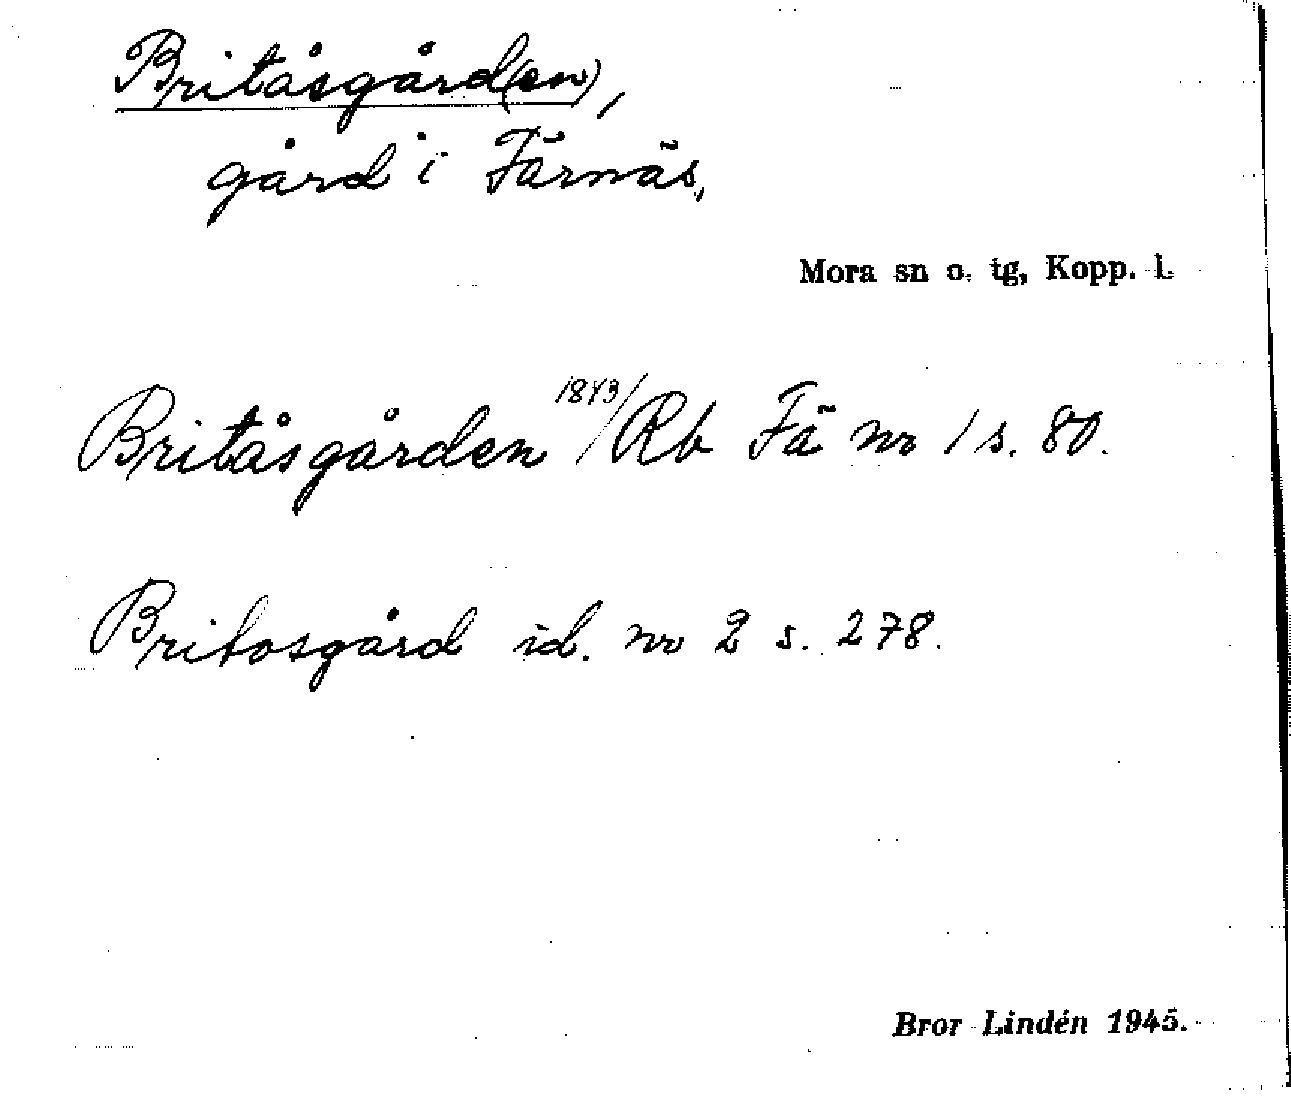 Britåsgård(en),
gård i Färnäs,
Mora sn o. tg, Kopp. l.
Britåsgården 1843/ Rb Fä nr 1 s. 80.
Britosgård id. nr 2 s. 278.
Bror Lindén 1945.